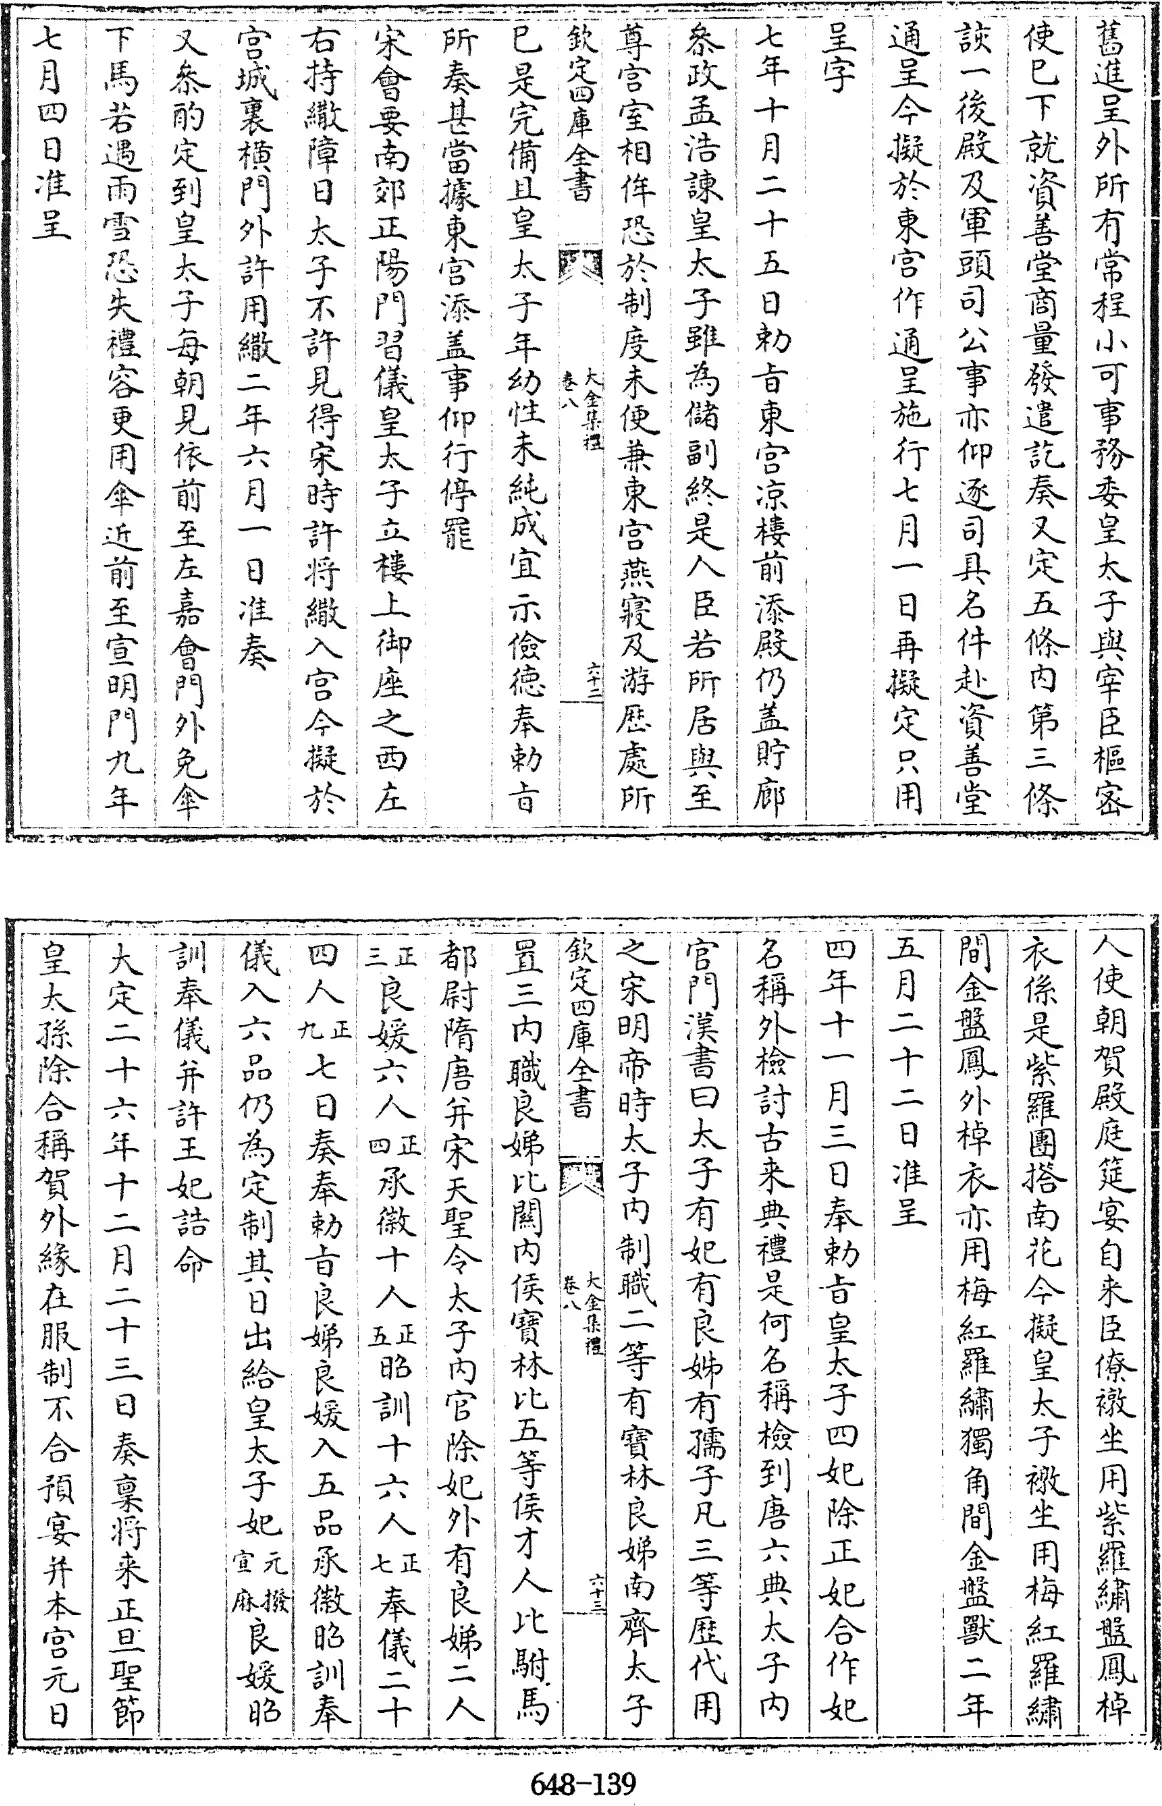 舊進呈外所有常程小可事務委皇太子與宰臣樞密
使巳下就資善堂商量發遣訖奏又定五條内第三條
該一後殿及軍頭司公事亦仰逐司具名件赴資善堂
通呈今擬於東宫作通呈施行七月一日再擬定只用
呈字
七年十月二十五日勅㫖東宫凉樓前添殿仍盖貯廊
叅政孟浩諫皇太子雖為儲副終是人臣若所居與至
尊宫室相侔恐於制度未便兼東宫燕寢及游歷處所
欽定四庫全書
大金集禮
卷八
六十二
巳是完備且皇太子年幼性未純成宜示儉德奉勅㫖
所奏甚當據東宫添盖事仰行停罷
宋會要南郊正陽門習儀皇太子立樓上御座之西左
右持繖障日太子不許見得宋時許将繖入宫今擬於
宫城裏橫門外許用繖二年六月一日准奏
又叅酌定到皇太子每朝見依前至左嘉會門外免傘
下馬若遇雨雪恐失禮容更用傘近前至宣明門九年
七月四日准呈
人使朝賀殿庭筵宴自来臣僚褥坐用紫羅繡盤鳳棹
衣係是紫羅團搭南花今擬皇太子褥坐用梅紅羅繡
間金盤鳳外棹衣亦用梅紅羅繡獨角間金盤獸二年
五月二十二日准呈
四年十一月三日奉勅㫖皇太子四妃除正妃合作妃
名稱外檢討古来典禮是何名稱檢到唐六典太子内
官門漢書曰太子有妃有良娣有孺子凡三等歷代用
之宋明帝時太子内制職二等有寶林良娣南齊太子
欽定四庫全書
大金集禮
卷八
六十三
置三内職良娣比關内侯寶林比五等侯才人比駙馬
都尉隋唐并宋天聖令太子内官除妃外有良娣二人
正三良媛六人正四承徽十人正五昭訓十六人正七奉儀二十
四人正九七日奏奉勅㫖良娣良媛入五品承徽昭訓奉
儀入六品仍為定制其日出給皇太子妃元撥宣麻良媛昭
訓奉儀并許王妃誥命
大定二十六年十二月二十三日奏稟将来正旦聖節
皇太孫除合稱賀外緣在服制不合預宴并本宫元日
648-139